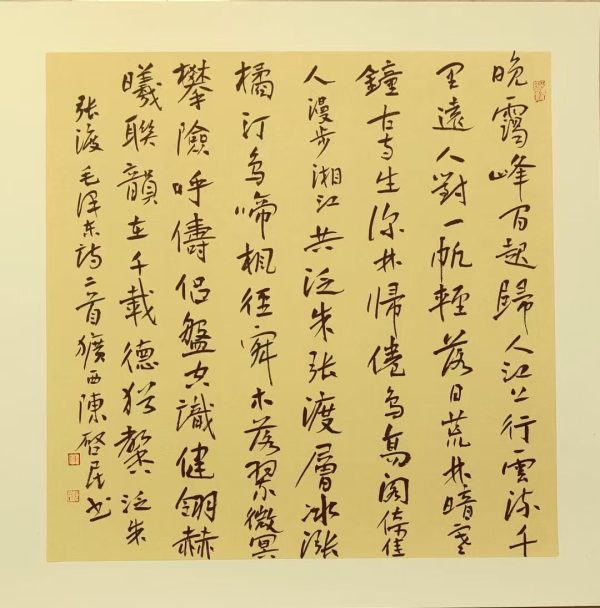 晚靄峰间起歸人江上行雲流千
里遠人對一帆輕落日荒林暗寒
鐘古寺生深林帰倦鸟高阁倚佳
人漫步湘江共泛朱张渡層冰漲
橘汀鸟啼楓徑寂木落翠微冥
攀險呼儔侣盤空識健翎赫
曦聯韻在千載德猶馨泛朱
张渡毛泽东诗二首獷西陳啓民书